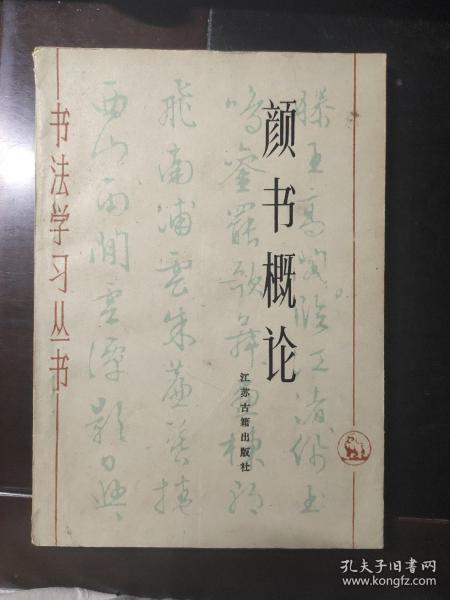 颜书概论
江苏古籍出版社
书法学习丛书
滕王高阁临江渚佩玉
鸣銮罢歌舞画栋朝
飞南浦云朱帘暮捲
西山雨闲云潭影日悠
孔夫子旧书网
www.kongfz.com